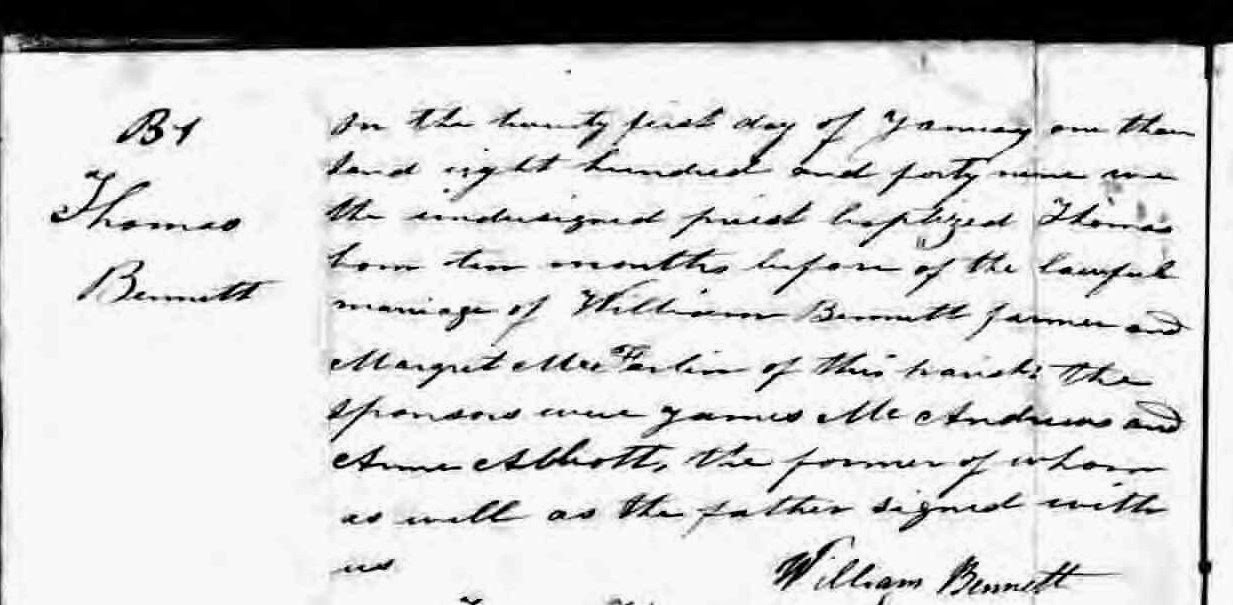 B 1
Thomas
Bennett
On the twenty first day of January one thou
sand eight hundred and forty nine we
the undersigned priest baptized Thomas
born ten months before of the lawful
marriage of William Bennett farmer and
Margret MacFarlin of this parish: the
sponsors were James Mc Andrews and
Anne Abbott, the former of whom
as well as the father signed with
us
William Bennett